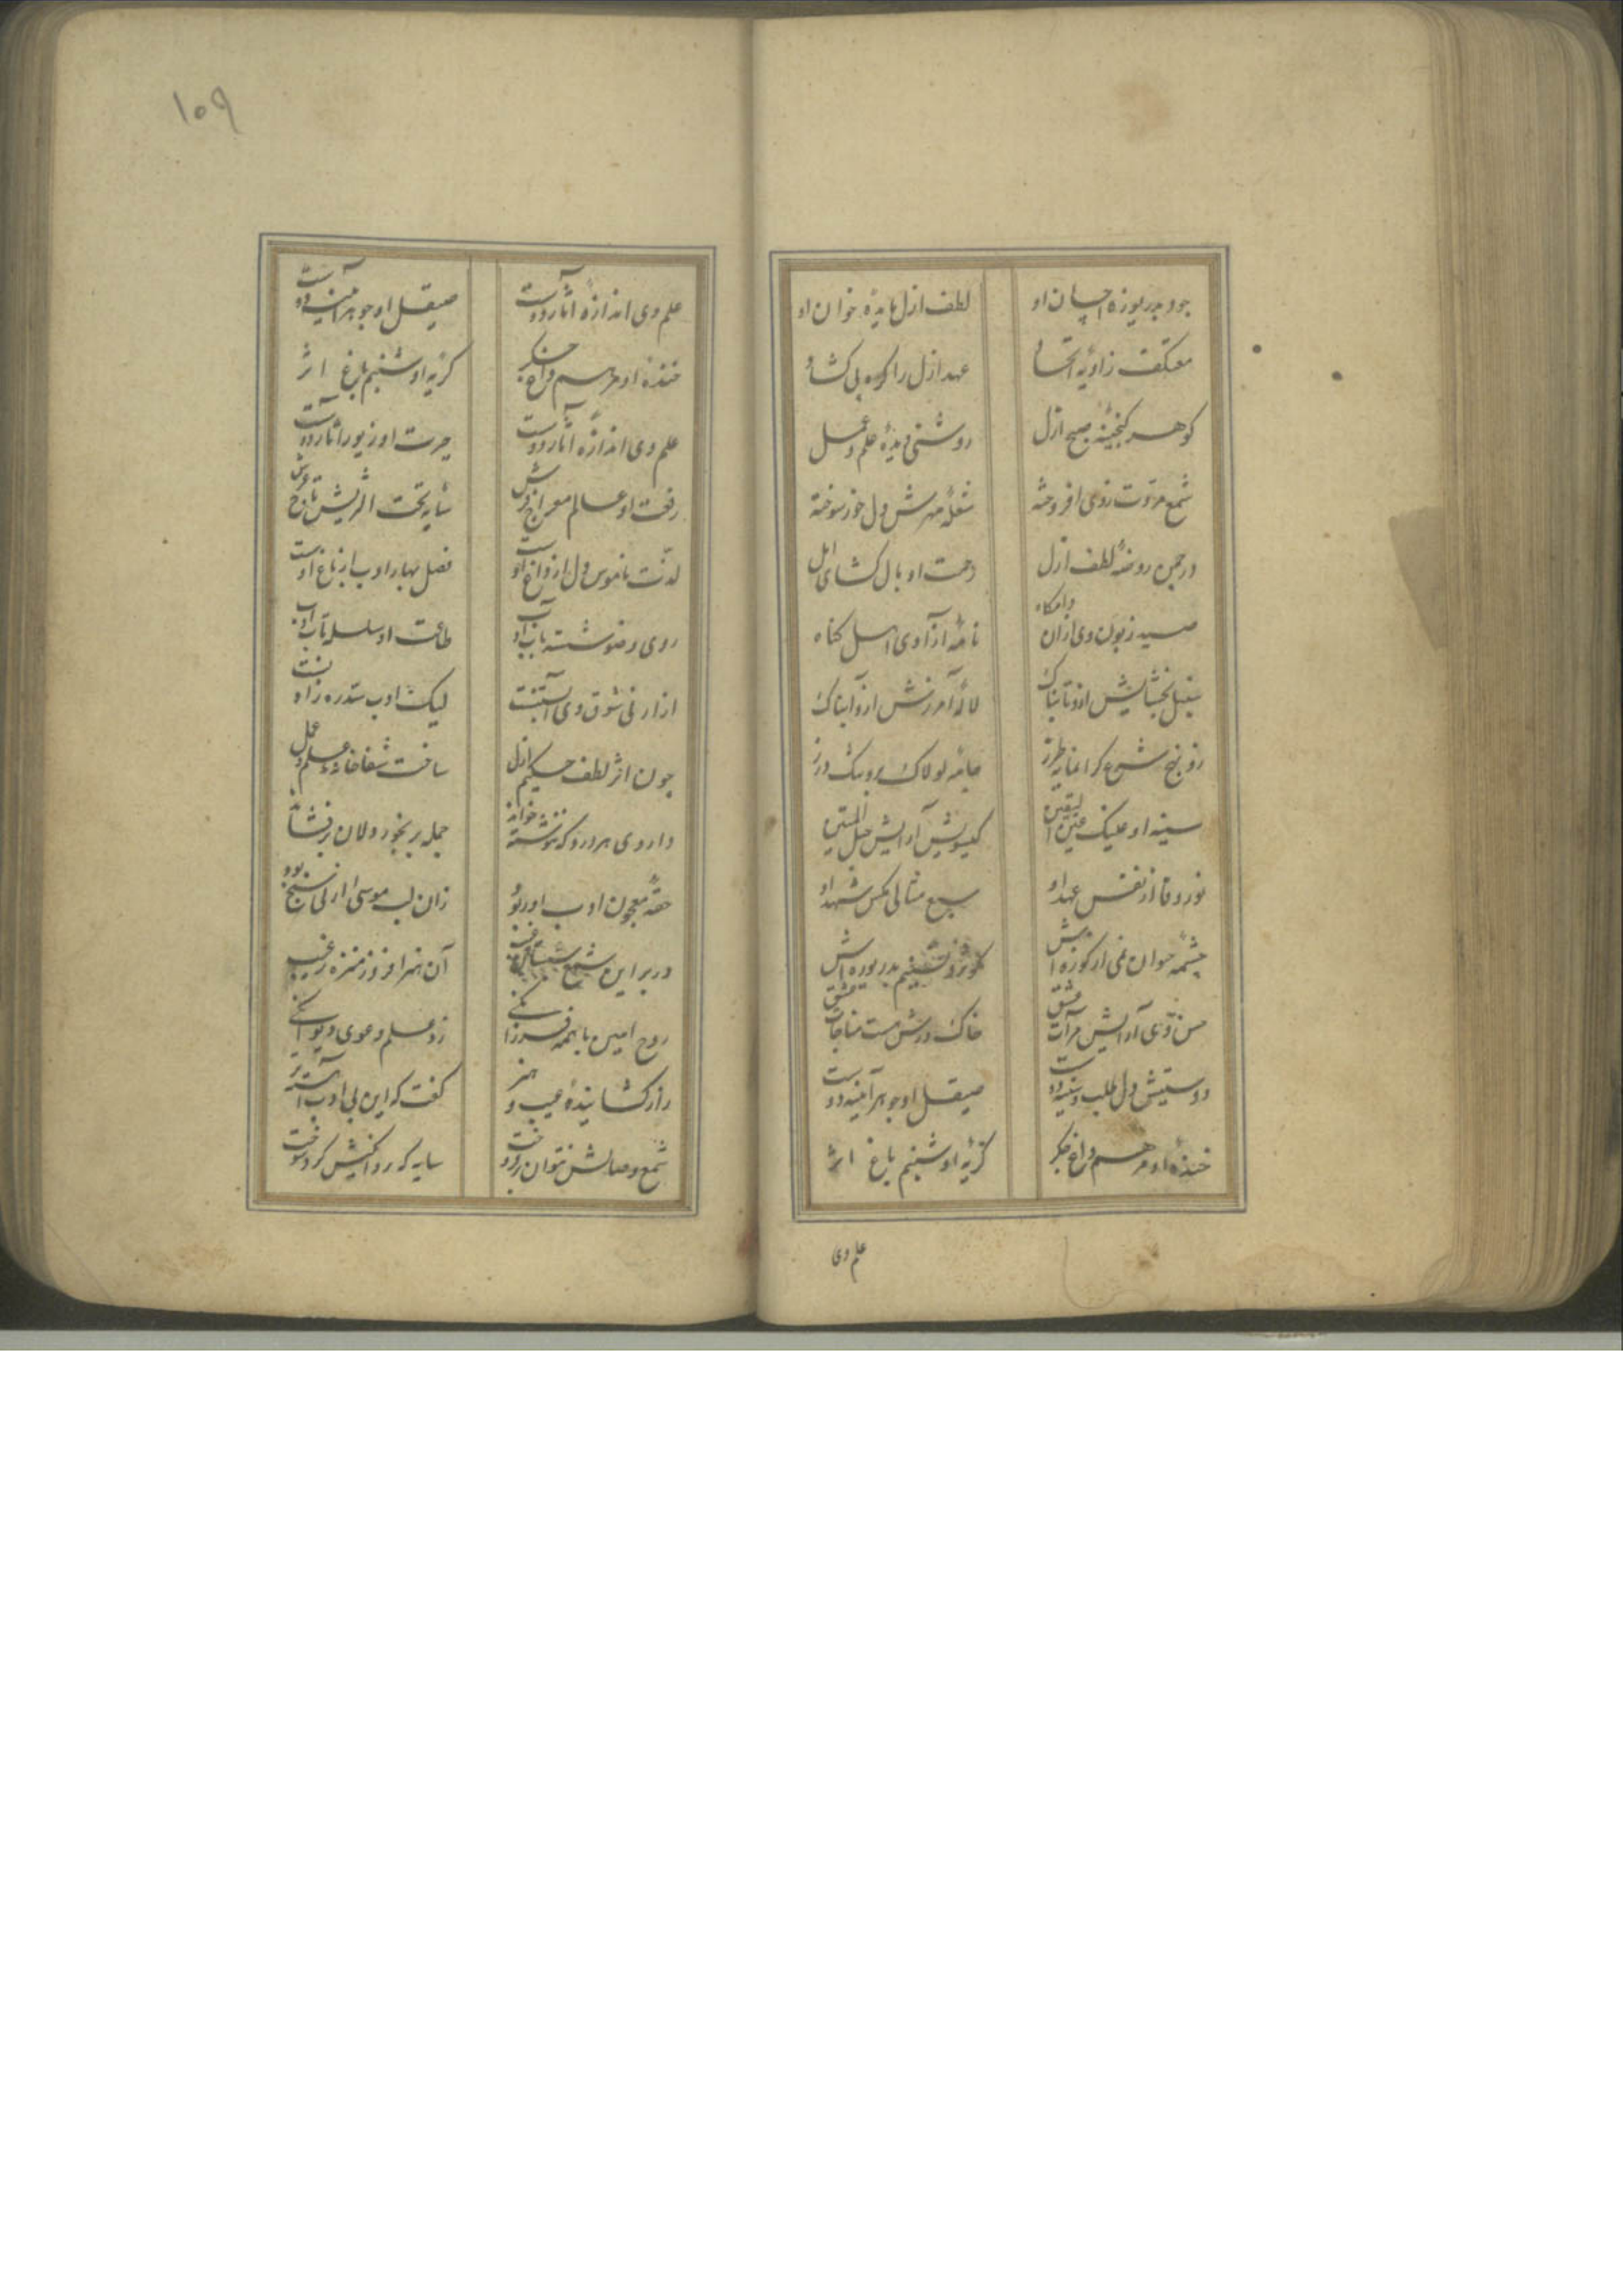 جود بدریوزه احسان او
لطف ازل مایدهٔ خوان او
معتکف زاویهٔ اتحاد
عهد ازل را گره بی گشاد
گوهر گنجینهٔ صبح ازل
روشنی دیدهٔ علم و عمل
شمع مروت ز وی افروخته
شعلهٔ مهرش دل خور سوخته
در چمن روضهٔ لطف ازل
رحمت او بال گشای امل
صید زبون وی از آن دامگاه
نامهٔ آزادی اهل گناه
سنبل بخشایش ازو تابناک
لالهٔ آمرزش ازو آبناک
زو برخ شرع گرانمایه طرز
جامهٔ لولاک برو تنگ درز
سینه او علیک عین الیقین
گیسویش آرایش حبل المتین
نور وفا از نفس عهد او
سبع مثانی مگس شهد او
چشمهٔ حیوان نمی از کوزه اش
کوثر و تسنیم بدریوزه اش
حسن وی آرایش مرآت عشق
خاک درش مست مناجات عشق
دوستیش دل طلب و سینه دوست
صیقل او جوهر آیینه دوست
خندهٔ او مرهم داغ جگر
گریهٔ او شبنم باغ اثر
علم وی
۱۰۹
علم وی اندازهٔ آثار دوست
صیقل او جوهر آیینه دوست
خندهٔ او مرهم داغ جگر
گریهٔ او شبنم باغ اثر
علم وی اندازهٔ آثار دوست
حیرت او زیور آثار دوست
رفعت او عالم معراج فرش
سایه تخت اثریش تاج عرش
لذت ناموس دل از داغ اوست
فصل بهار ادب از باغ اوست
روی وضو شسته بآب ادب
طاعت او سلسله تاب ادب
از ارنی شوق وی آبستنست
لیک ادب سد ره زادنست
چون اثر لطف حکیم ازل
ساخت شفاخانهٔ علم و عمل
داروی هر درد که ننوشته خواند
جمله برنجور دلان برفشاند
حقهٔ معجون ادب او ربود
زان لب موسی ارنی سنج بود
در بر این شمع شبستان غیب
آن هنر افروز منزه ز عیب
روح امین با همه فرزانگی
زد علم دعوی دیوانگی
راز گشایندهٔ عیب و هنر
گفت که این بی ادب آهسته تر
شمع وصالش نتوان بر فروخت
سایه که رو داکنیش کرد سوخت